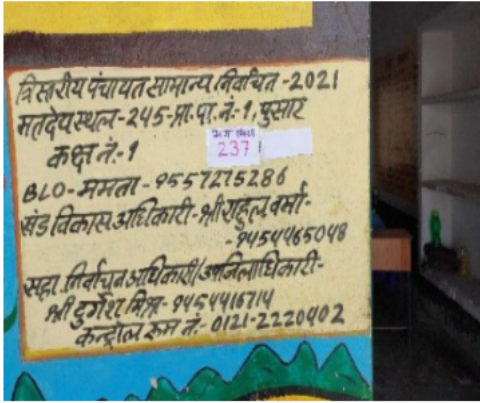 त्रिस्तरीय पंचायत सामान्य निर्वाचन-2021
मतदेय स्थल-245-प्रा.पा.नं.-1, पुसार
237
कक्ष नं.-1
BLO-ममता-9557275286
खंड विकास अधिकारी-श्री राहुल वर्मा-
-9454465048
सहा. निर्वाचन अधिकारी/उपजिलाधिकारी-
श्री दुर्गेश मिश्र-9454416714
कन्ट्रोल रूम नं:-0121-2220402